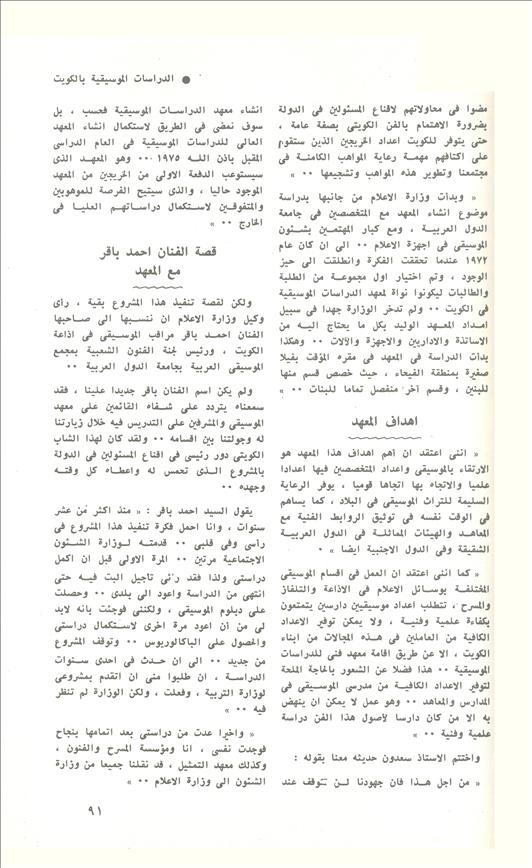 ● الدراسات الموسيقية بالكويت
مضوا فى محاولاتهم لاقناع المسئولين فى الدولة
بضرورة الاهتمام بالفن الكويتى بصفة عامة ،
حتى يتوفر للكويت اعداد الخريجين الذين ستقوم
على اكتافهم مهمة رعاية المواهب الكامنة فى
مجتمعنا وتطوير هذه المواهب وتشجيعها ٠٠ »
« وبدأت وزارة الاعلام من جانبها بدراسة
موضوع انشاء المعهد مع المتخصصين فى جامعة
الدول العربية ، ومع كبار المهتمين بشئون
الموسيقى فى اجهزة الاعلام ٠٠ الى ان كان عام
١٩٧٢ عندما تحققت الفكرة وانطلقت الى حيز
الوجود ، وتم اختيار اول مجموعة من الطلبة
والطالبات ليكونوا نواة لمعهد الدراسات الموسيقية
فى الكويت ٠٠ ولم تدخر الوزارة جهدا فى سبيل
امداد المعهد الوليد بكل ما يحتاج اليه من
الاساتذة والاداريين والاجهزة والآلات ٠٠ وهكذا
بدأت الدراسة فى المعهد فى مقره المؤقت بفيلا
صغيرة بمنطقة الفيحاء ، حيث خصص قسم منها
للبنين ، وقسم آخر منفصل تماما للبنات ٠٠ »
اهداف المعهد
« اننى اعتقد ان أهم اهداف هذا المعهد هو
الارتقاء بالموسيقى واعداد المتخصصين فيها اعدادا
علميا والاتجاه بها اتجاها قوميا ، يوفر الرعاية
السليمة للتراث الموسيقى فى البلاد ، كما يساهم
فى الوقت نفسه فى توثيق الروابط الفنية مع
المعاهد والهيئات المماثلة فى الدول العربية
الشقيقة وفى الدول الاجنبية ايضا » ٠
« كما اننى اعتقد ان العمل فى اقسام الموسيقى
المختلفة بوسائل الاعلام فى الاذاعة والتلفاز
والمسرح ، تتطلب اعداد موسيقيين دارسين يتمتعون
بكفاءة علمية وفنية ، ولا يمكن توفير الاعداد
الكافية من العاملين فى هذه المجالات من ابناء
الكويت ، الا عن طريق اقامة معهد فنى للدراسات
الموسيقية ٠٠ هذا فضلا عن الشعور بالحاجة الملحة
لتوفير الاعداد الكافية من مدرسى الموسيقى فى
المدارس والمعاهد ٠٠ وهو عمل لا يمكن ان ينهض
به الا من كان دارسا لأصول هذا الفن دراسة
علمية وفنية ٠٠ »
واختتم الاستاذ سعدون حديثه معنا بقوله :
« من اجل هذا فان جهودنا لن تتوقف عند
انشاء معهد الدراسات الموسيقية فحسب ، بل
سوف نمضى فى الطريق لاستكمال انشاء المعهد
العالى للدراسات الموسيقية فى العام الدراسى
المقبل باذن الله ١٩٧٥ ٠٠ وهو المعهد الذى
سيستوعب الدفعة الاولى من الخريجين من المعهد
الموجود حاليا ، والذى سيتيح الفرصة للموهوبين
والمتفوقين لاستكمال دراساتهم العليا فى
الخارج ٠٠ »
قصة الفنان احمد باقر
مع المعهد
ولكن لقصة تنفيذ هذا المشروع بقية ، رأى
وكيل وزارة الاعلام ان ننسبها الى صاحبها
الفنان احمد باقر مراقب الموسيقى فى اذاعة
الكويت ، ورئيس لجنة الفنون الشعبية بمجمع
الموسيقى العربية بجامعة الدول العربية ٠٠
ولم يكن اسم الفنان باقر جديدا علينا ، فقد
سمعناه يتردد على شفاه القائمين على معهد
الموسيقى والمشرفين على التدريس فيه خلال زيارتنا
له وجولتنا بين اقسامه ٠٠ ولقد كان لهذا الشاب
الكويتى دور رئيسى فى اقناع المسئولين فى الدولة
بالمشروع الذى تحمس له واعطاه كل وقته
وجهده ٠٠
يقول السيد احمد باقر : « منذ اكثر من عشر
سنوات ، وانا احمل فكرة تنفيذ هذا المشروع فى
رأسى وفى قلبى ٠٠ قدمته لوزارة الشئون
الاجتماعية مرتين ٠٠ المرة الاولى قبل ان اكمل
دراستى ولذا فقد رئى تأجيل البت فيه حتى
انتهى من الدراسة واعود الى بلدى ٠٠ وحصلت
على دبلوم الموسيقى ، ولكننى فوجئت بأنه لابد
لى من أن اعود مرة اخرى لاستكمال دراستى
والحصول على الباكالوريوس ٠٠ وتوقف المشروع
من جديد ٠٠ الى ان حدث فى احدى سنوات
الدراسة ، ان طلبوا منى ان اتقدم بمشروعى
لوزارة التربية ، وفعلت ، ولكن الوزارة لم تنظر
فيه ٠٠ »
« واخيرا عدت من دراستى بعد اتمامها بنجاح
فوجدت نفسى ، انا ومؤسسة المسرح والفنون ،
وكذلك معهد التمثيل ، قد نقلنا جميعا من وزارة
الشئون الى وزارة الاعلام ٠٠ »
٩١